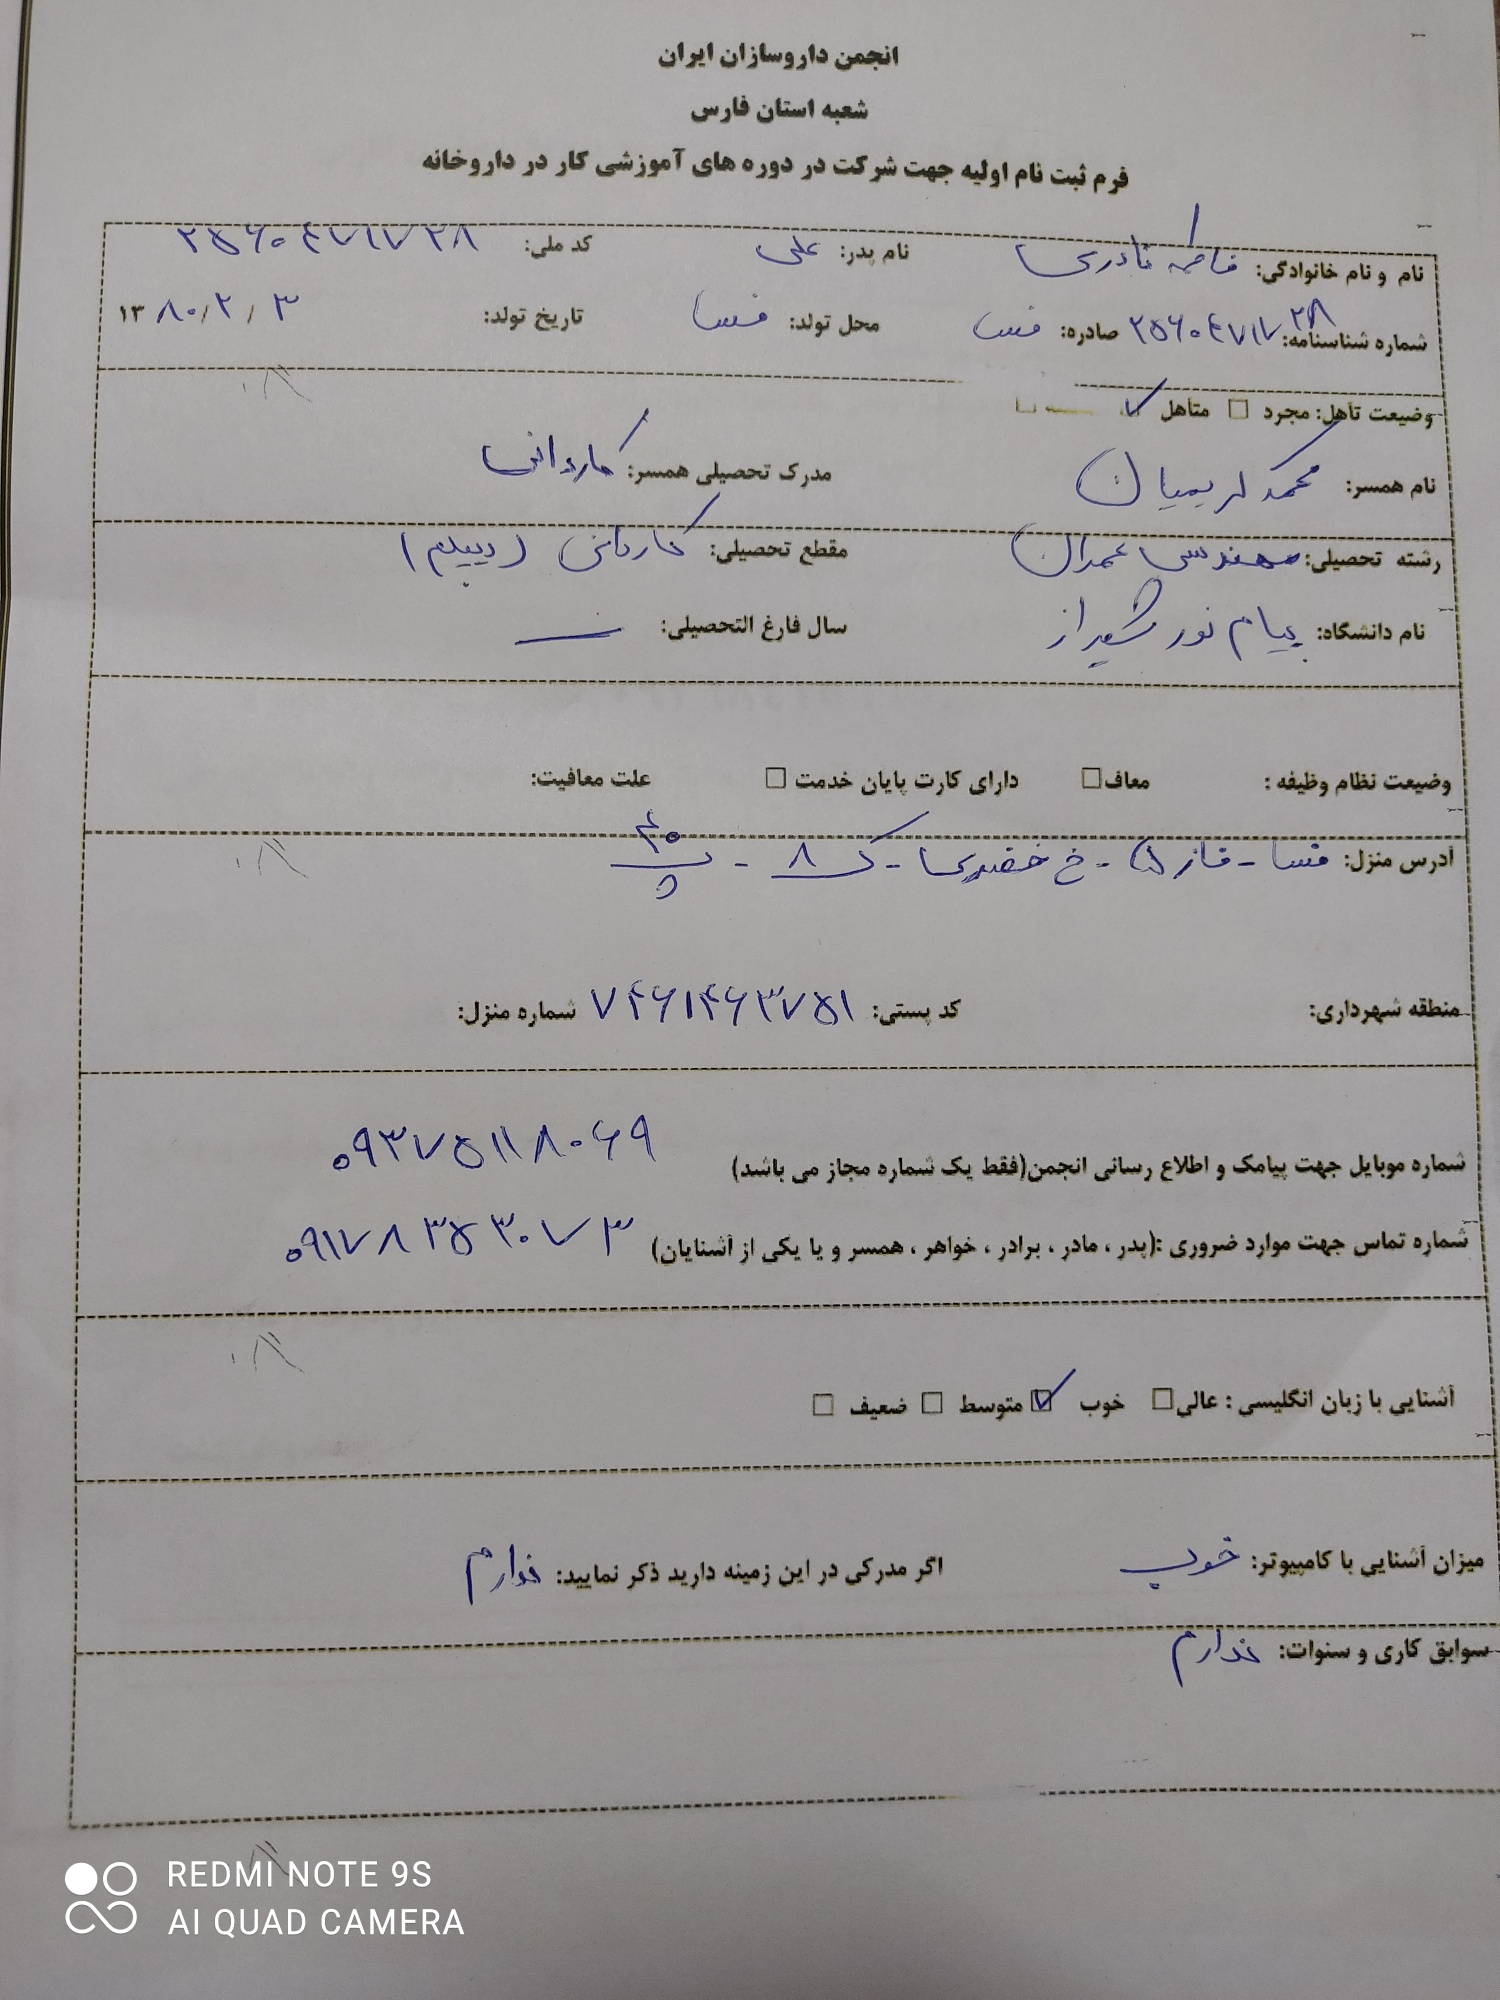 انجمن داروسازان ایران
شعبه استان فارس
فرم ثبت نام اولیه جهت شرکت در دوره های آموزشی کار در داروخانه
نام و نام خانوادگی: فاطمه نادری نام پدر: علی کد ملی: ۲۵۶۰۴۷۱۷۲۸
شماره شناسنامه: ۲۵۶۰۴۷۱۷۲۸ صادره: فسا محل تولد: فسا تاریخ تولد: ۱۳۸۰/۲/۳
وضعیت تأهل: مجرد □ متأهل ✓
نام همسر: محمد کریمیان مدرک تحصیلی همسر: کاردانی
رشته تحصیلی: مهندسی عمران مقطع تحصیلی: کاردانی (دیپلم)
نام دانشگاه: پیام نور شیراز سال فارغ التحصیلی: ـ
وضعیت نظام وظیفه : معاف □ دارای کارت پایان خدمت □ علت معافیت:
آدرس منزل: فسا - فاز ۵ - خ خضری - ک ۸ - پ
منطقه شهرداری: کد پستی: ۷۴۶۱۴۶۳۷۵۱ شماره منزل:
شماره موبایل جهت پیامک و اطلاع رسانی انجمن(فقط یک شماره مجاز می باشد) ۰۹۳۷۵۱۱۸۰۶۹
شماره تماس جهت موارد ضروری :(پدر ، مادر ، برادر ، خواهر ، همسر و یا یکی از آشنایان) ۰۹۱۷۸۳۵۳۰۷۳
آشنایی با زبان انگلیسی : عالی □ خوب ☑ متوسط □ ضعیف □
میزان آشنایی با کامپیوتر: خوب اگر مدرکی در این زمینه دارید ذکر نمایید: ندارم
سوابق کاری و سنوات: ندارم
REDMI NOTE 9S
AI QUAD CAMERA